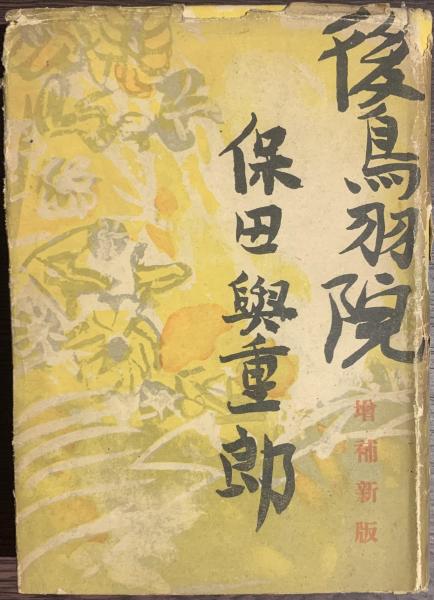 後鳥羽院
増補新版
保田與重郎